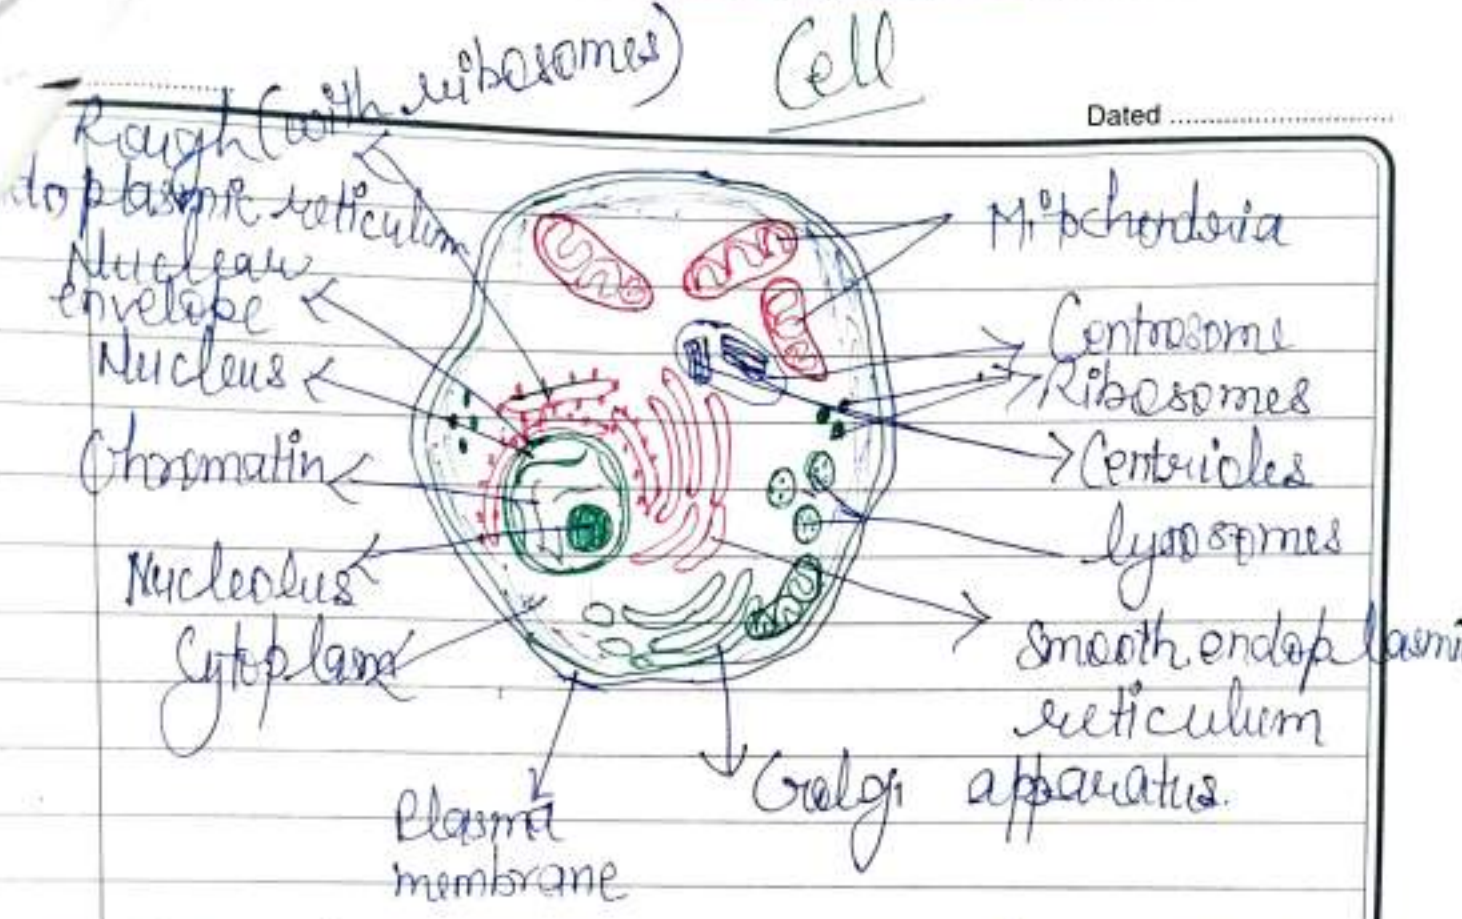 Cell
Dated
Rough (with ribosomes)
doplasmic reticulum
Nuclear
envelope
Nucleus
Chromatin
Nucleolus
Cytoplasm
Plasma
membrane
Mitochondria
Centrosome
Ribosomes
Centrioles
lysosomes
Smooth endoplasmi
reticulum
Golgi apparatus.